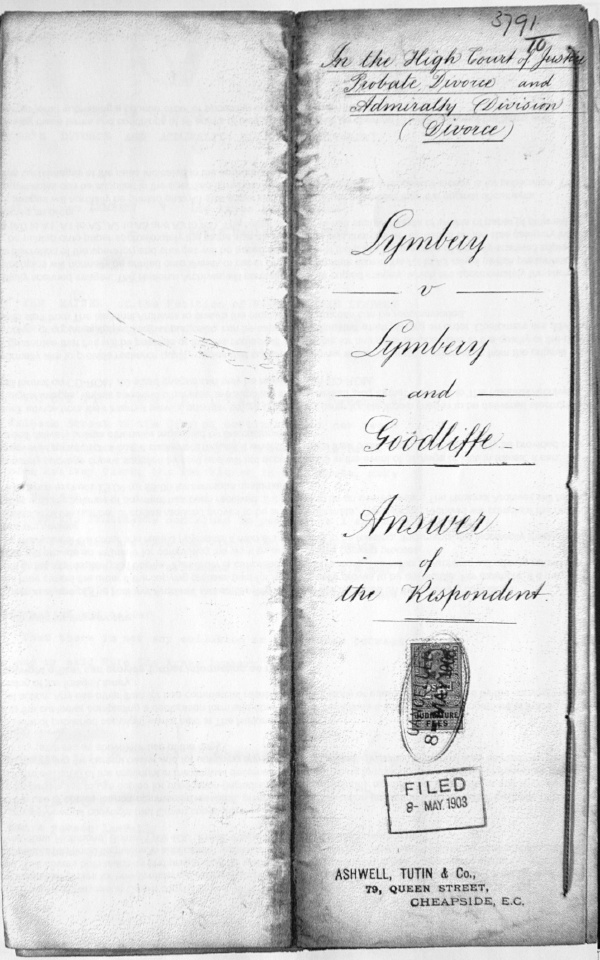 3791
10
In the High Court of Justice
Probate Divorce and
Admiralty Division
(Divorce)
Lymbery
v
Lymbery
and
Goodliffe
Answer
of
the Respondent
CANCELLED
8- MAY 1903
JUDICATURE
FEES
FILED
8- MAY. 1903
ASHWELL, TUTIN & Co.,
79, QUEEN STREET,
CHEAPSIDE, E.C.